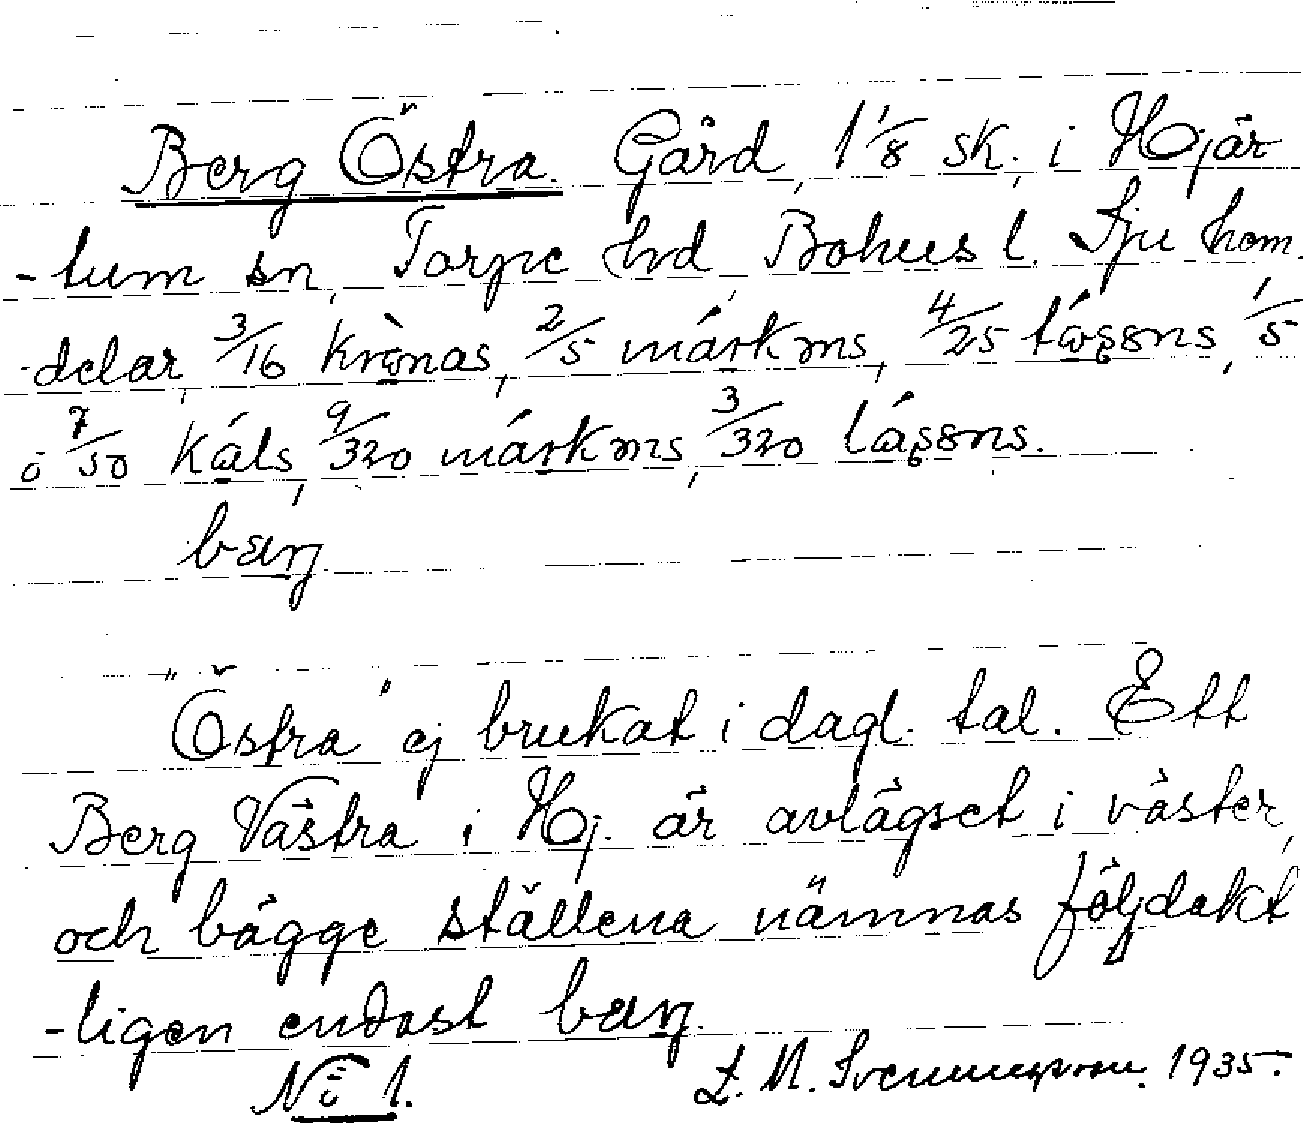 Berg Östra. Gård, 1 1/8 sk., i Hjär
-tum sn, Torpe hd, Bohus l. Sju hem.
-delar, 3/16 krònas, 2/5 márkms, 4/25 1/5
o 7/50 káls, 9/320 márkms, 3/320
bæŋ
"Östra" ej brukat i dagl. tal. Ett
Berg Västra i Hj. är avlägset i väster,
och bägge ställena nämnas följdakt
-ligen endast bæŋ.
No 1.
1935.